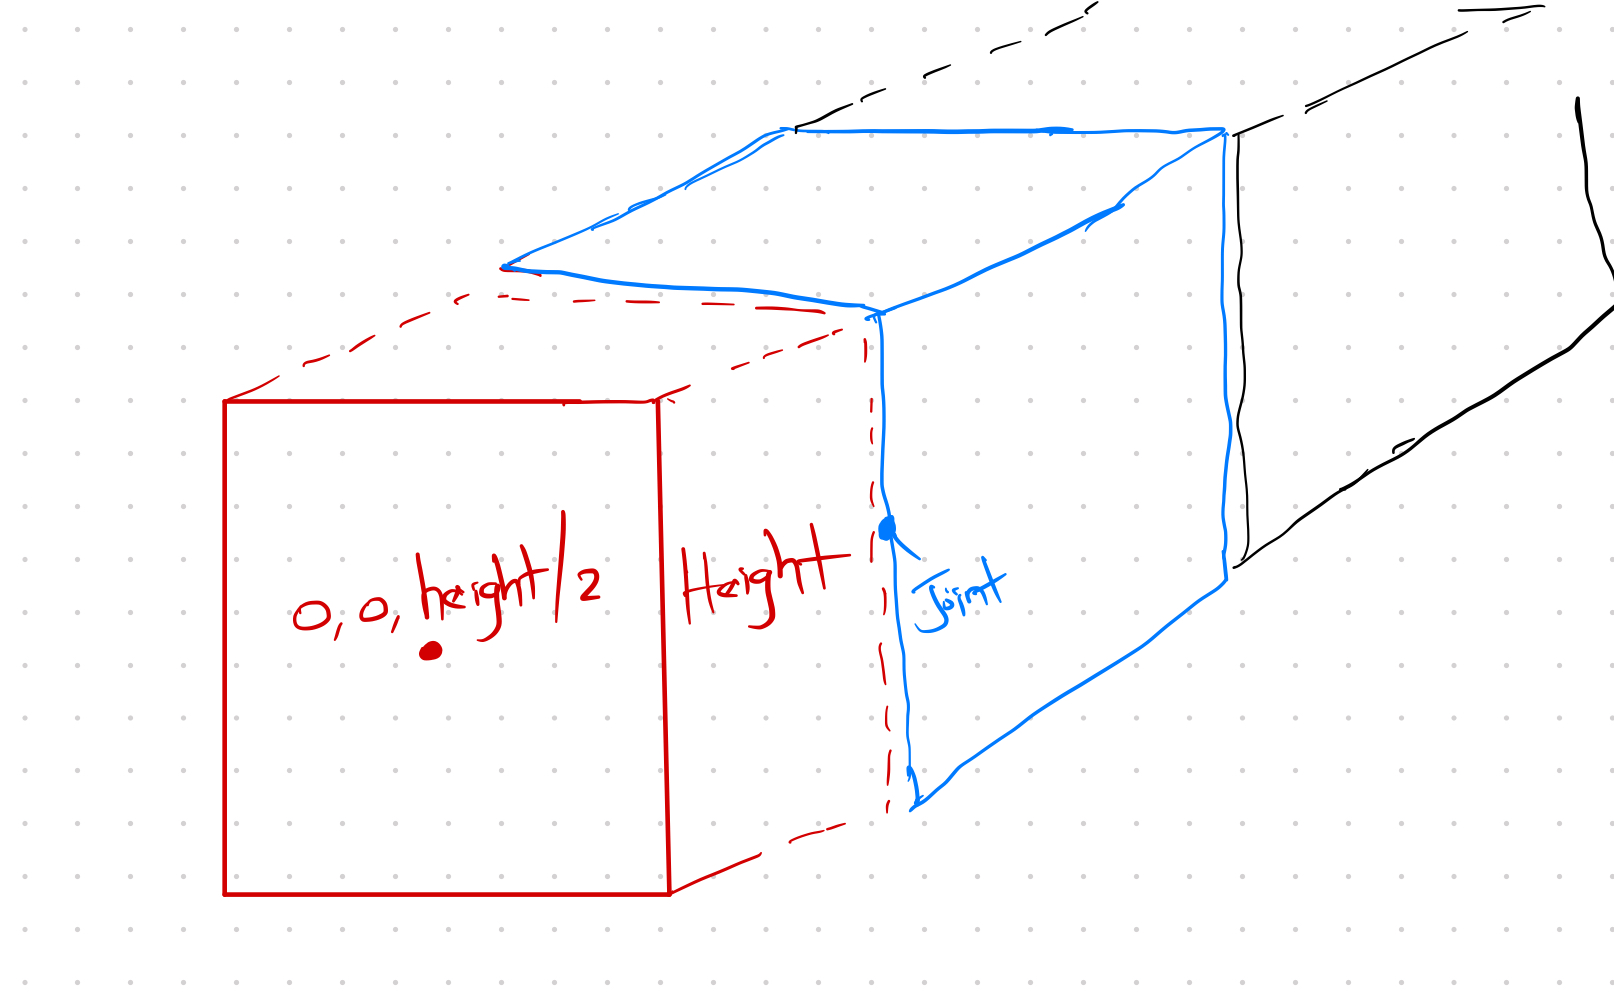 0, 0, height/2
Height
Joint